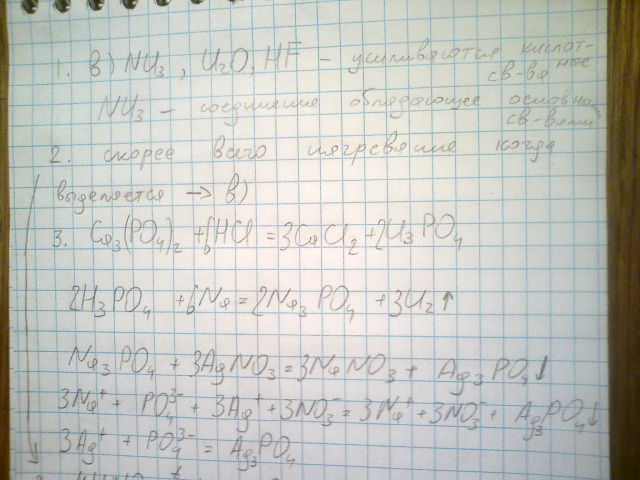 1. в) NH₃, H₂O, HF – усиливаются кислот-
ные
св-ва
NH₃ – соединение обладающее основны
св-вами
2. скорее всего нагревание когда
выделяется → в)
3. Ca₃(PO₄)₂ + 6HCl = 3CaCl₂ + 2H₃PO₄
2H₃PO₄ + 6Na = 2Na₃PO₄ + 3H₂↑
Na₃PO₄ + 3AgNO₃ = 3NaNO₃ + Ag₃PO₄↓
3Na⁺ + PO₄³⁻ + 3Ag⁺ + 3NO₃⁻ = 3Na⁺ + 3NO₃⁻ + Ag₃PO₄↓
3Ag⁺ + PO₄³⁻ = Ag₃PO₄